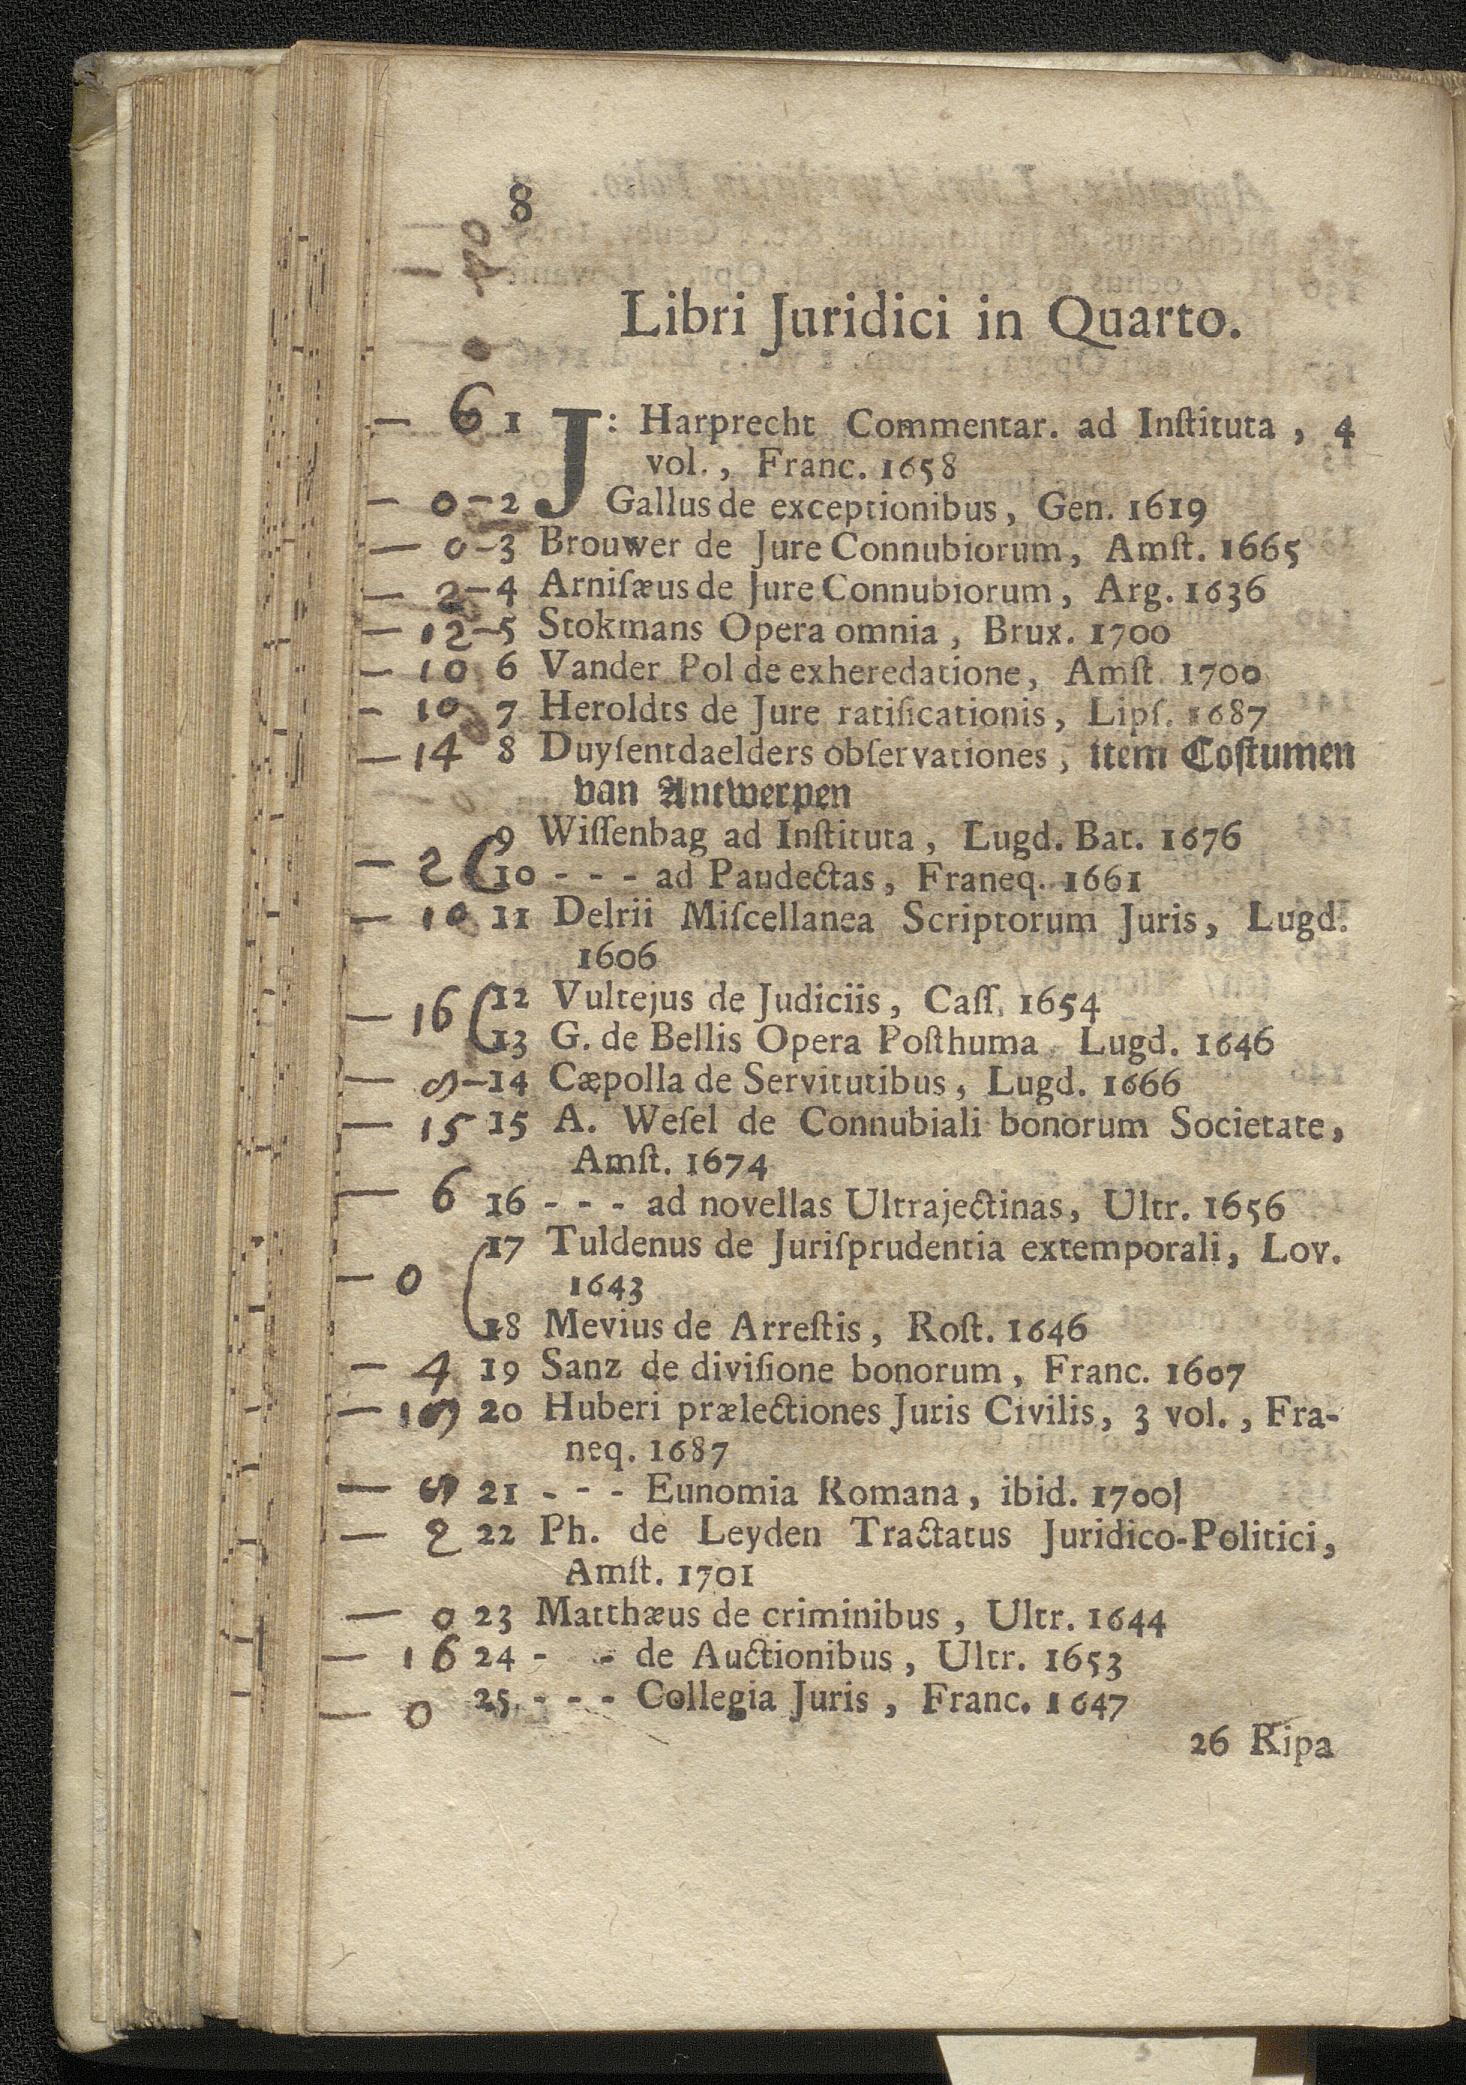 8
Libri Juridici in Quarto.
— 6 1 J: Harprecht Commentar. ad Inſtituta, 4
vol., Franc. 1658
— 0 — 2 Gallus de exceptionibus, Gen. 1619
— 0 — 3 Brouwer de Jure Connubiorum, Amſt. 1665
— 2 — 4 Arniſæus de Jure Connubiorum, Arg. 1636
— 12 — 5 Stokmans Opera omnia, Brux. 1700
— 10 6 Vander Pol de exheredatione, Amſt. 1700
— 10 7 Heroldts de Jure ratificationis, Lipſ. 1687
— 14 8 Duyſentdaelders obſervationes, item Coſtumen
van Antwerpen
9 Wiſſenbag ad Inſtituta, Lugd. Bat. 1676
— 2 ( 10 - - - ad Paudectas, Franeq. 1661
— 10 11 Delrii Miſcellanea Scriptorum Juris, Lugd.
1606
12 Vultejus de Judiciis, Caſſ. 1654
— 16 ( 13 G. de Bellis Opera Poſthuma Lugd. 1646
— — 14 Cæpolla de Servitutibus, Lugd. 1666
— 15 15 A. Weſel de Connubiali bonorum Societate,
Amſt. 1674
— 6 16 - - - ad novellas Ultrajectinas, Ultr. 1656
17 Tuldenus de Juriſprudentia extemporali, Lov.
— 0 ( 1643
18 Mevius de Arreſtis, Roſt. 1646
— 4 19 Sanz de diviſione bonorum, Franc. 1607
— 20 Huberi prælectiones Juris Civilis, 3 vol., Fra-
neq. 1687
— 21 - - - Eunomia Romana, ibid. 1700
— 2 22 Ph. de Leyden Tractatus Juridico-Politici,
Amſt. 1701
— 0 23 Matthæus de criminibus, Ultr. 1644
— 16 24 - - de Auctionibus, Ultr. 1653
— 0 25 - - - Collegia Juris, Franc. 1647
26 Ripa